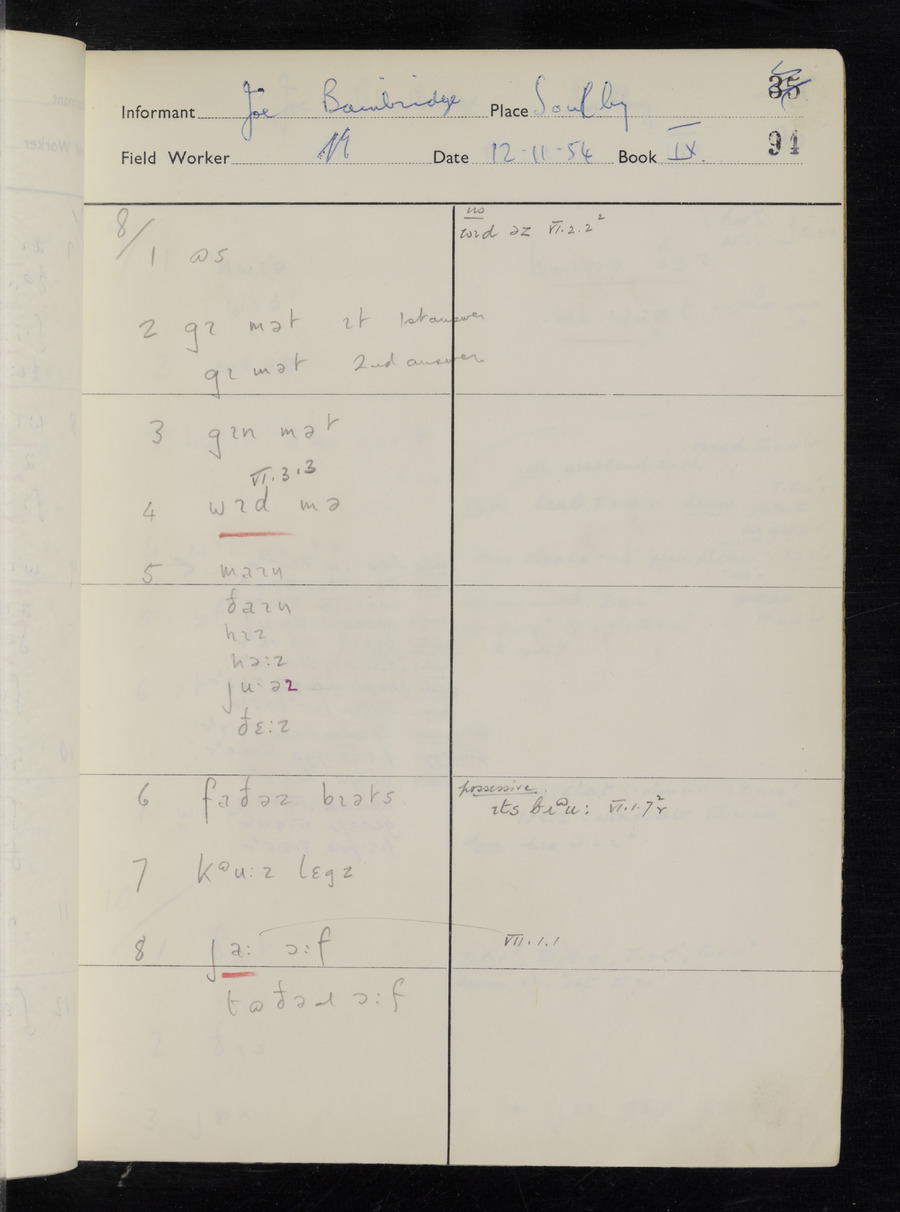 35
Informant Joe Bainbridge Place Soulby
Field Worker Date 12-11-54 Book IX. 94
8/
1 ɷs
no
wɪd əz VI.2.2²
2 gɪ mət ɪt 1st answer
gɪ mət 2nd answer
3 gɪn mət
VI.3.3
4 wɪd mə
5 maɪn
ðaɪn
hɪz
hə:z
juˑəz
ðɛ:z
6 faðəz bɪəts
possessive
ɪts brᶷu: VI.1.7²
7 kᶷu:z lɛgz
8 ja: ɔ:f VII.1.1
tɷðəɹ ɔ:f